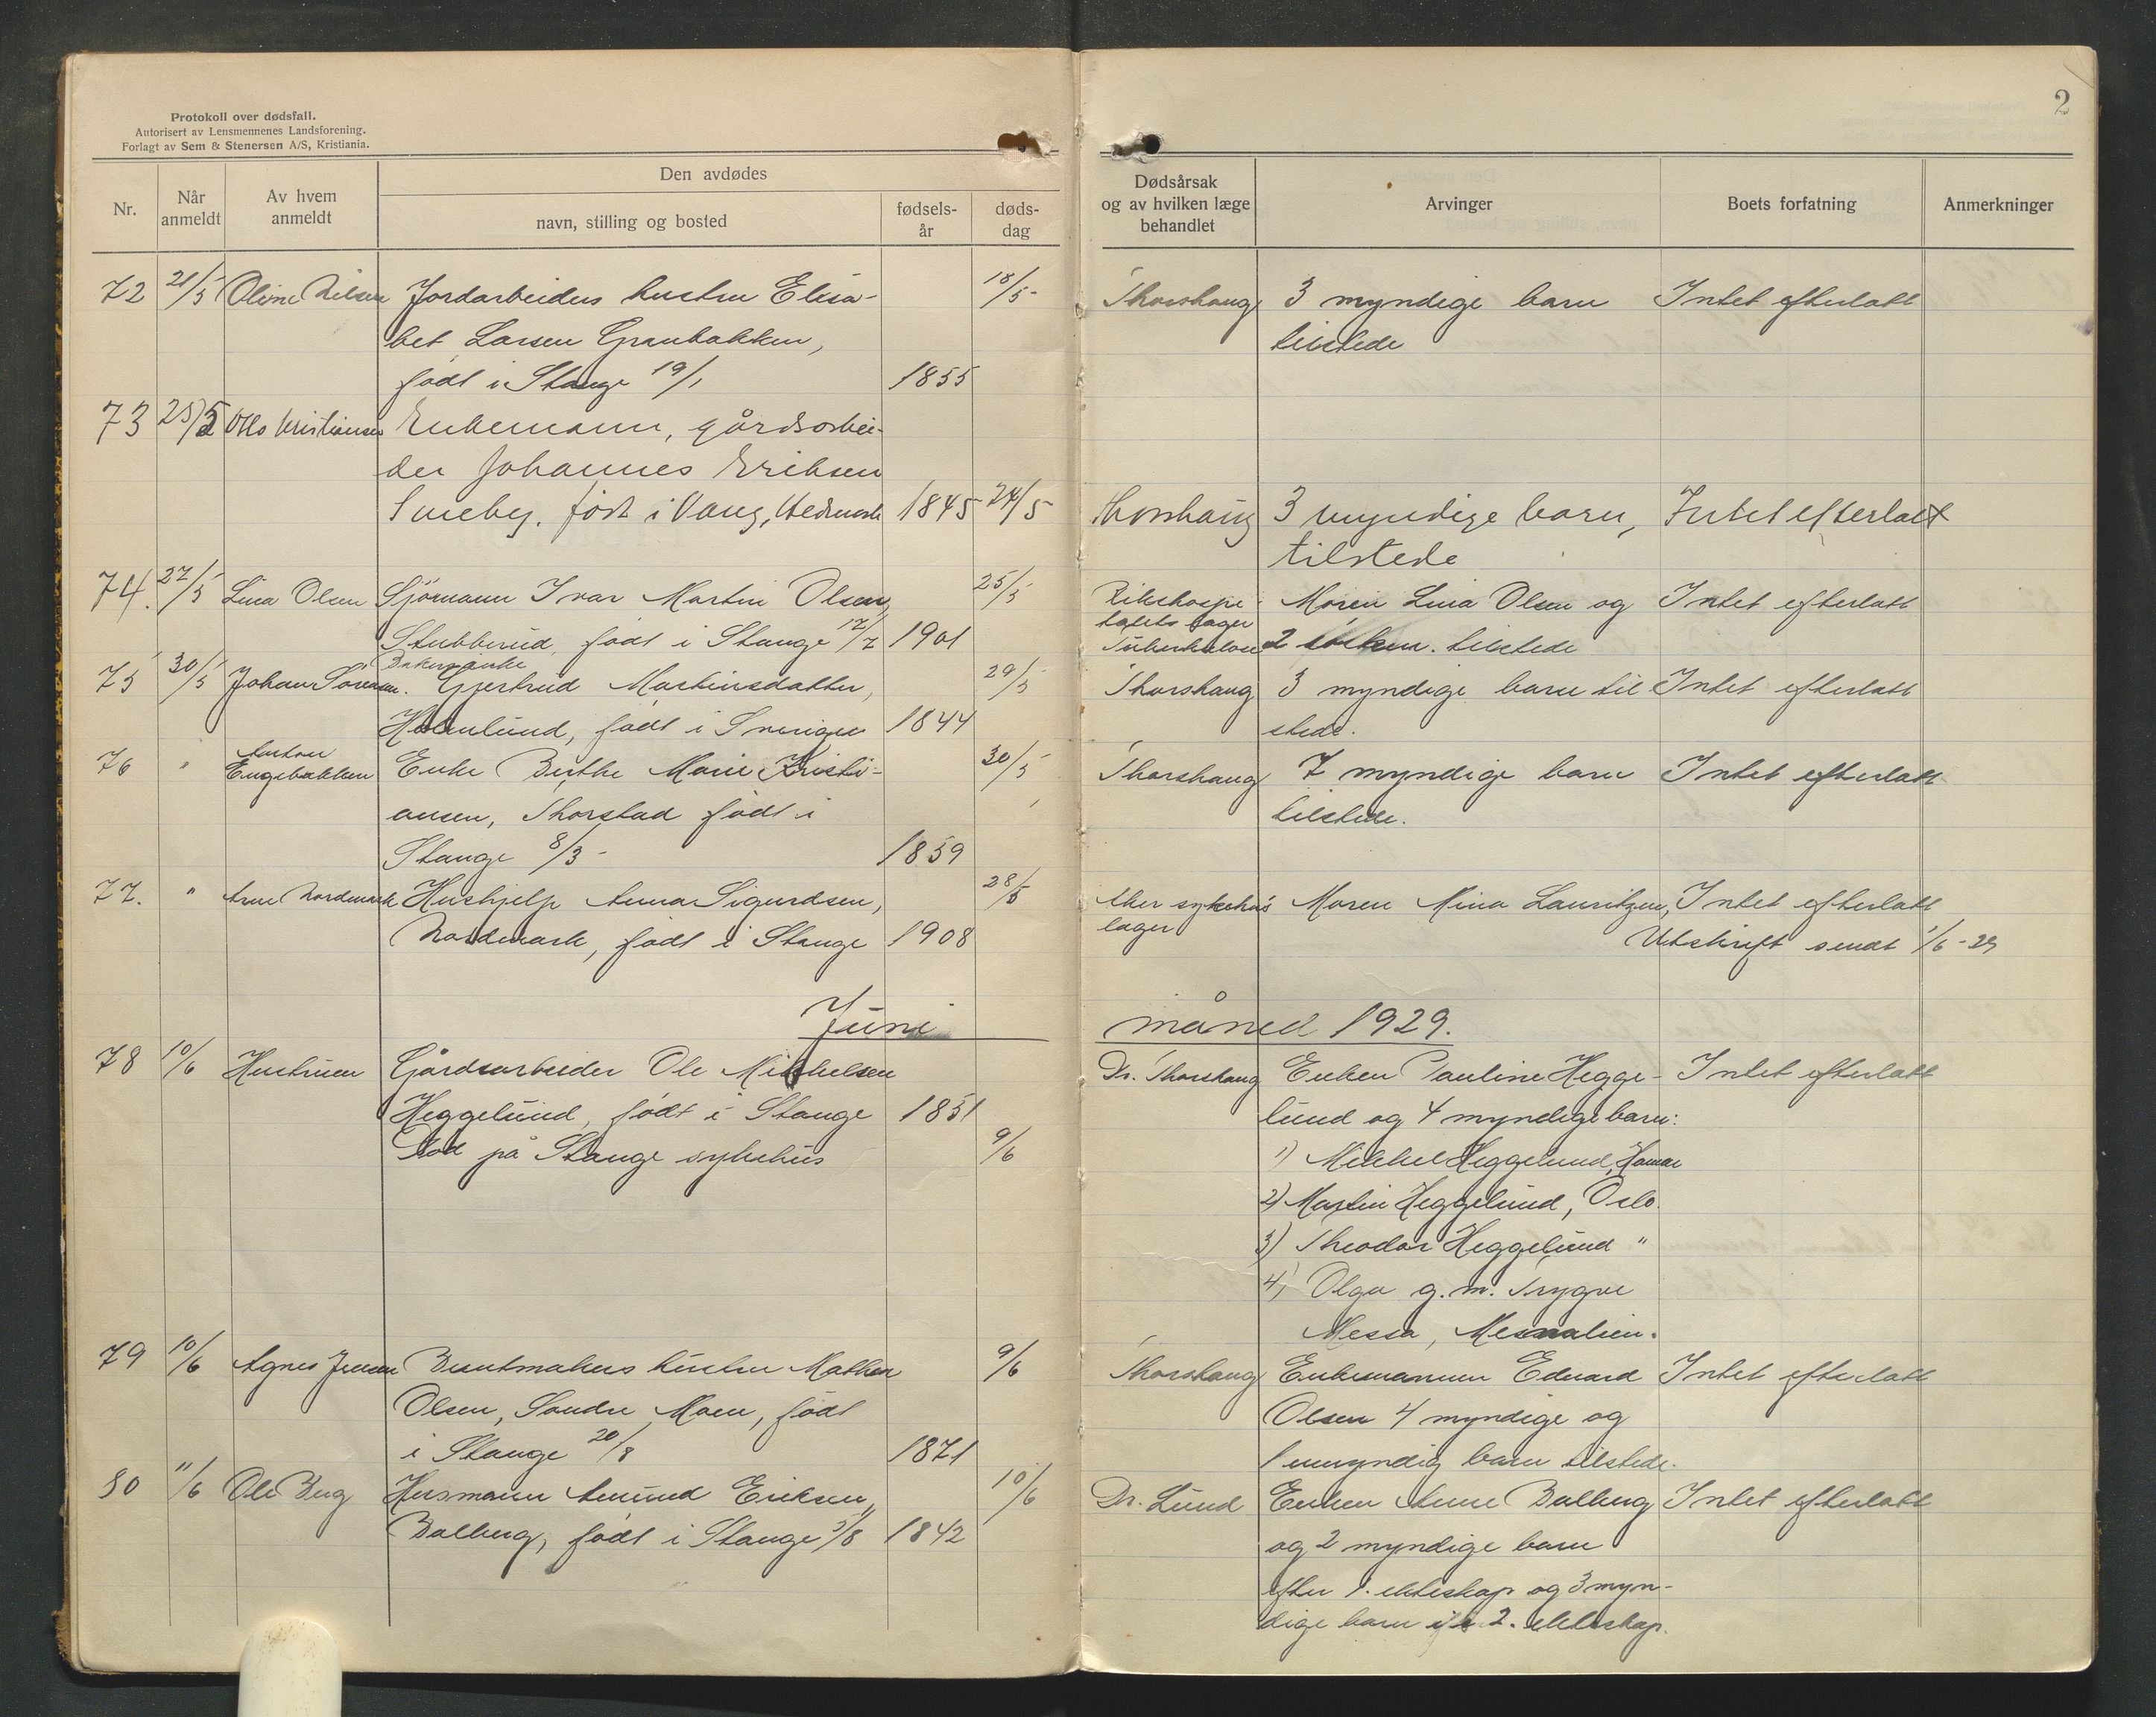 Protokoll over dødsfall.
Autorisert av Lensmennenes Landsforening.
Forlagt av Sem & Stenersen A/S, Kristiania.
2
Nr.
Når anmeldt
Av hvem anmeldt
Den avdødes
navn, stilling og bosted
fødsels-år
døds-dag
Dødsårsak og av hvilken læge behandlet
Arvinger
Boets forfatning
Anmerkninger
72 21/5 Oline Nilsen Jordarbeiders hustru Elisa- 18/5 Thorshaug 3 myndige barn Intet efterlatt
bet Larsen Granbakken, tilstede
født i Stange 19/1 1855
73 25/5 Otto Kristiansen Enkemann, gårdsarbei-
der Johannes Eriksen
født i Vang, Hedmark 1845 24/5 Thorshaug 3 myndige barn, Intet efterlatt
tilstede
74. 27/5 Lina Olsen Sjömann Ivar Martin Olsen, 25/5 Rikshospi- Moren Lina Olsen og Intet efterlatt
talets læger
Stubberud, født i Stange 12/7 1901 Tuberkulose 2 søsken. tilstede
Bakerenke
75 30/5 Johan Sörensen. Gjertrud Martinsdatter, 29/5 Thorshaug 3 myndige barn til Intet efterlatt
Holmlund, født i Sverige 1844 stede.
Anton
76 " Engebakken Enke Berthe Marie Kristi- 30/5 Thorshaug 7 myndige barn Intet efterlatt
ansen, Thorstad født i tilstede.
Stange 8/3 - 1859
77. " Arne Nordmark Hushjelp Anna Sigurdsen, 28/5 Aker sykehus Moren Mina Lauritzen, Intet efterlatt
læger
Nordmark, født i Stange 1908 Utskrift sendt 1/6 - 29
Juni måned 1929.
78 10/6 Hustruen Gårdsarbeider Ole Mikkelsen Dr. Thorshaug Enken Pauline Hegge- Intet efterlatt
Heggelund, født i Stange 1851 lund og 4 myndige barn:
Död på Stange sykehus 9/6 1) Mikkel Heggelund, Hamar
2) Martin Heggelund, Oslo.
3) Theodor Heggelund "
4) Olga g. m. Trygve
Messa, Mesnalien.
79 10/6 Agnes Jensen Buntmakers hustru Mathea 9/6 Thorshaug Enkemannen Edvard Intet efterlatt
Olsen, Søndre Moen, født Olsen 4 myndige og
i Stange 20/8 1871 1 umyndig barn tilstede.
80 11/6 Ole Berg Husmann Amund Eriksen, 10/6 Dr. Lund Enken Anne Balberg Intet efterlatt
Balberg, født i Stange 5/8 1842 og 2 myndige barn
efter 1. ekteskap og 3 myn-
dige barn i 2. ekteskap.